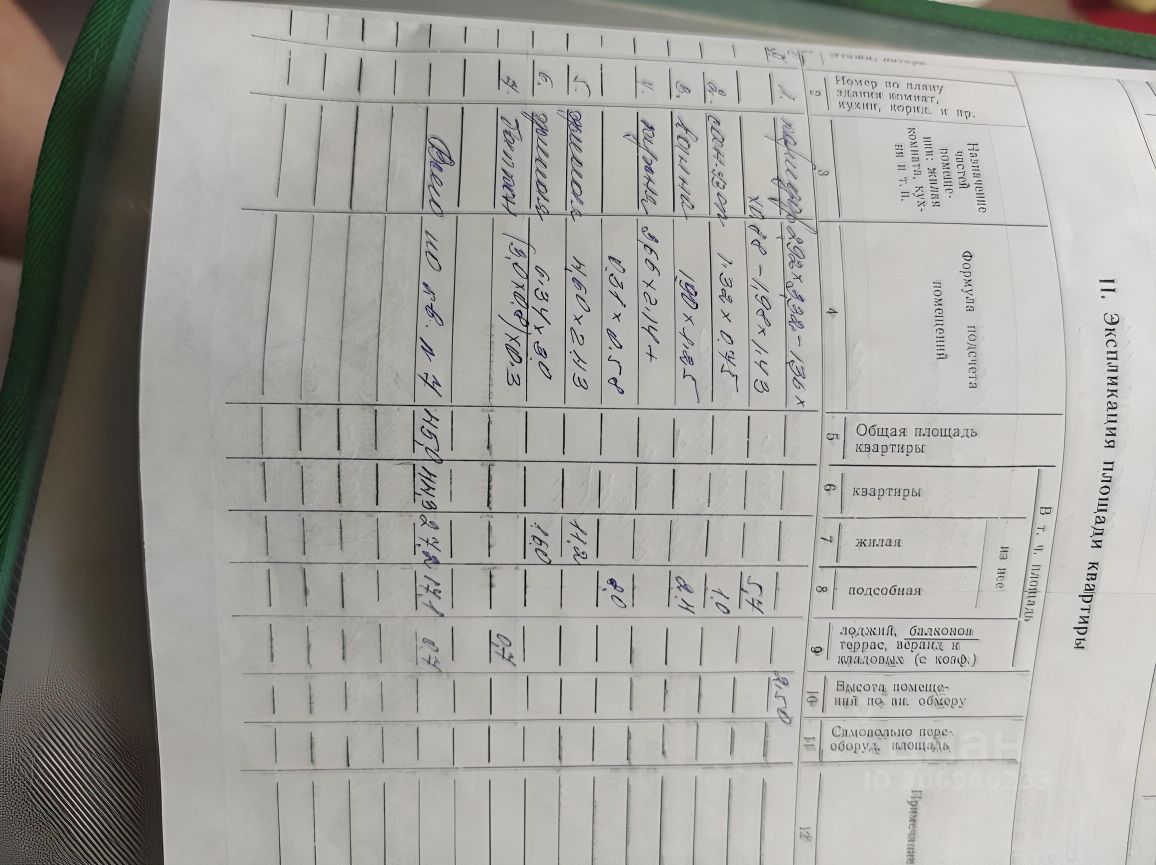 II. Экспликация площади квартиры
Номер по плану
здания комнат,
кухни, корид. и пр.
Назначение
частей
помеще-
ний: жилая
комната, кух-
ня и т. п.
Формула подсчета
помещений
Общая площадь
квартиры
В т. ч. площадь
квартиры
из нее
жилая
подсобная
лоджий, балконов
террас, веранд и
кладовых (с коэф.)
Высота помеще-
ний по вн. обмеру
Самовольно пере-
оборуд. площадь
2 3 4 5 6 7 8 9 10 11 12
1. 2,92 × 3,32 - 1,36 × 2,50
× 0,88 - 1,98 × 1.43 5,7
2. 1.32 × 0.75 1,0
3. 1,90 × 1.25 2,4
4. 3,66 × 2.14 +
0,31 × 0.58 8,0
5. жилая 4,60 × 2.43 11,2
6. жилая 5.34 × 3.0 16,0
7. Балкон (3,0 × 0,8) × 0.3 0,7
Всего по кв. № 7 45,0 44,3 27,2 17,1 0,7
ЦИАН
ID 306949233